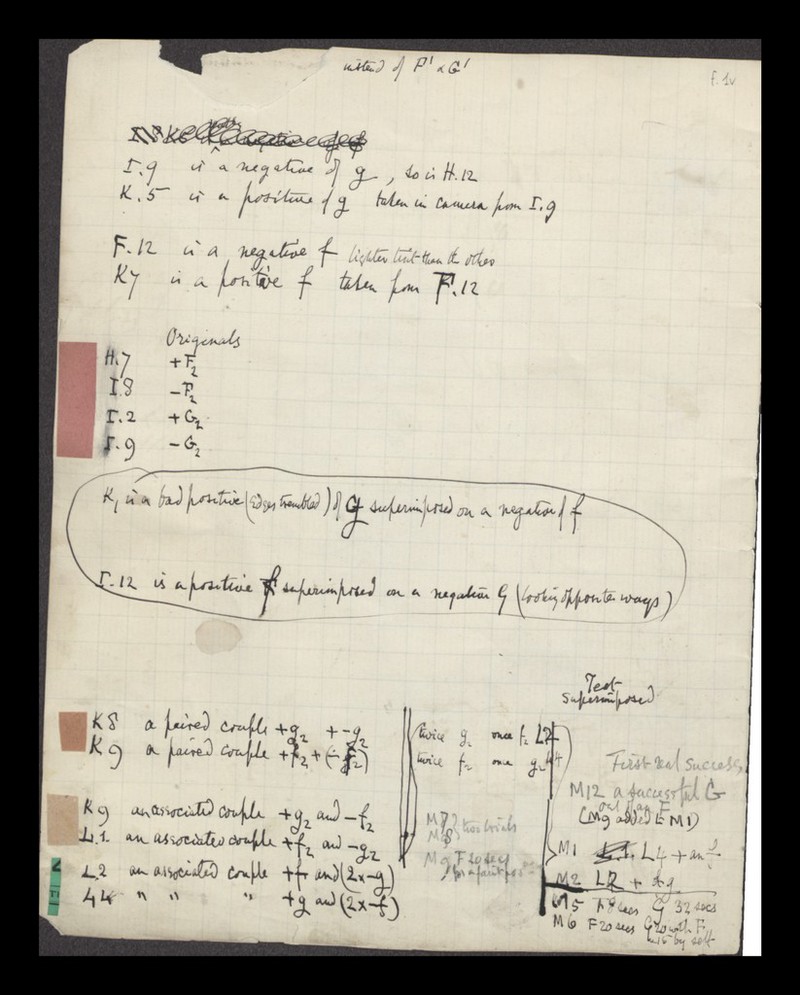 instead of F' & G'
f. 1v
I.9 is a negative of g, so is H.12
K.5 is a positive of g taken in camera from I.9
F.12 is a negative f lighter tint than the other
K7 is a positive f taken from F.12
Originals
H.7 +F2
I.8 -F2
I.2 +G2
I.9 -G2
K1 is a bad positive (edges trembled) of G superimposed on a negative of f
I.12 is a positive f superimposed on a negative G (looking opposite ways)
Test
superimposed
K8 a paired couple +g2 + -g2
K9 a paired couple +f2 + (-f2)
twice g2 once f2 L2
twice f2 once g2 L4
First real success
M12 a successful G
out of an F
(M9 added to M1)
K9 an associated couple +g2 and -f2
L.1 an associated couple +f2 and -g2
L.2 an associated couple +f and (2x-g)
L4 " " " +g and (2x-f)
M7
M8 two trials
M9 F 20 secs
M1 L4 + an
M2 L2 +
M5 F8 secs G 32 secs
M6 F 20 secs G 20 with F
by self